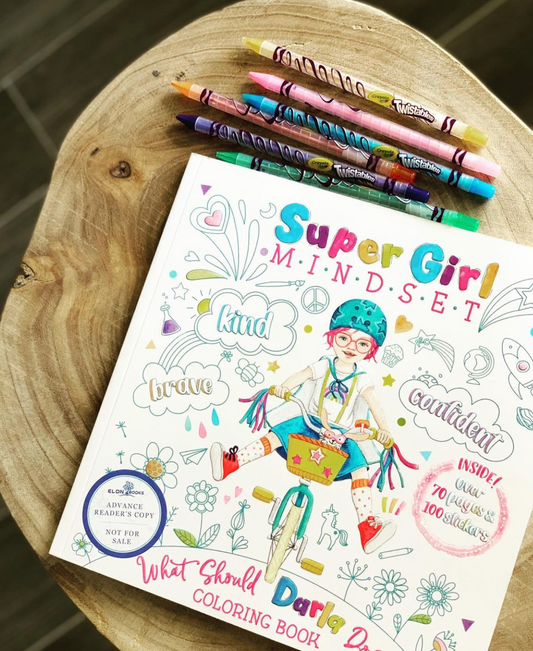 Crayola
Twistables
Crayola
Twistables
Crayola
Twistables
Super Girl
M·I·N·D·S·E·T
kind
brave
confident
INSIDE!
Over
70 pages &
100 stickers
ELON BOOKS
ADVANCE
READER'S COPY
NOT FOR
SALE
What Should
Darla
COLORING BOOK